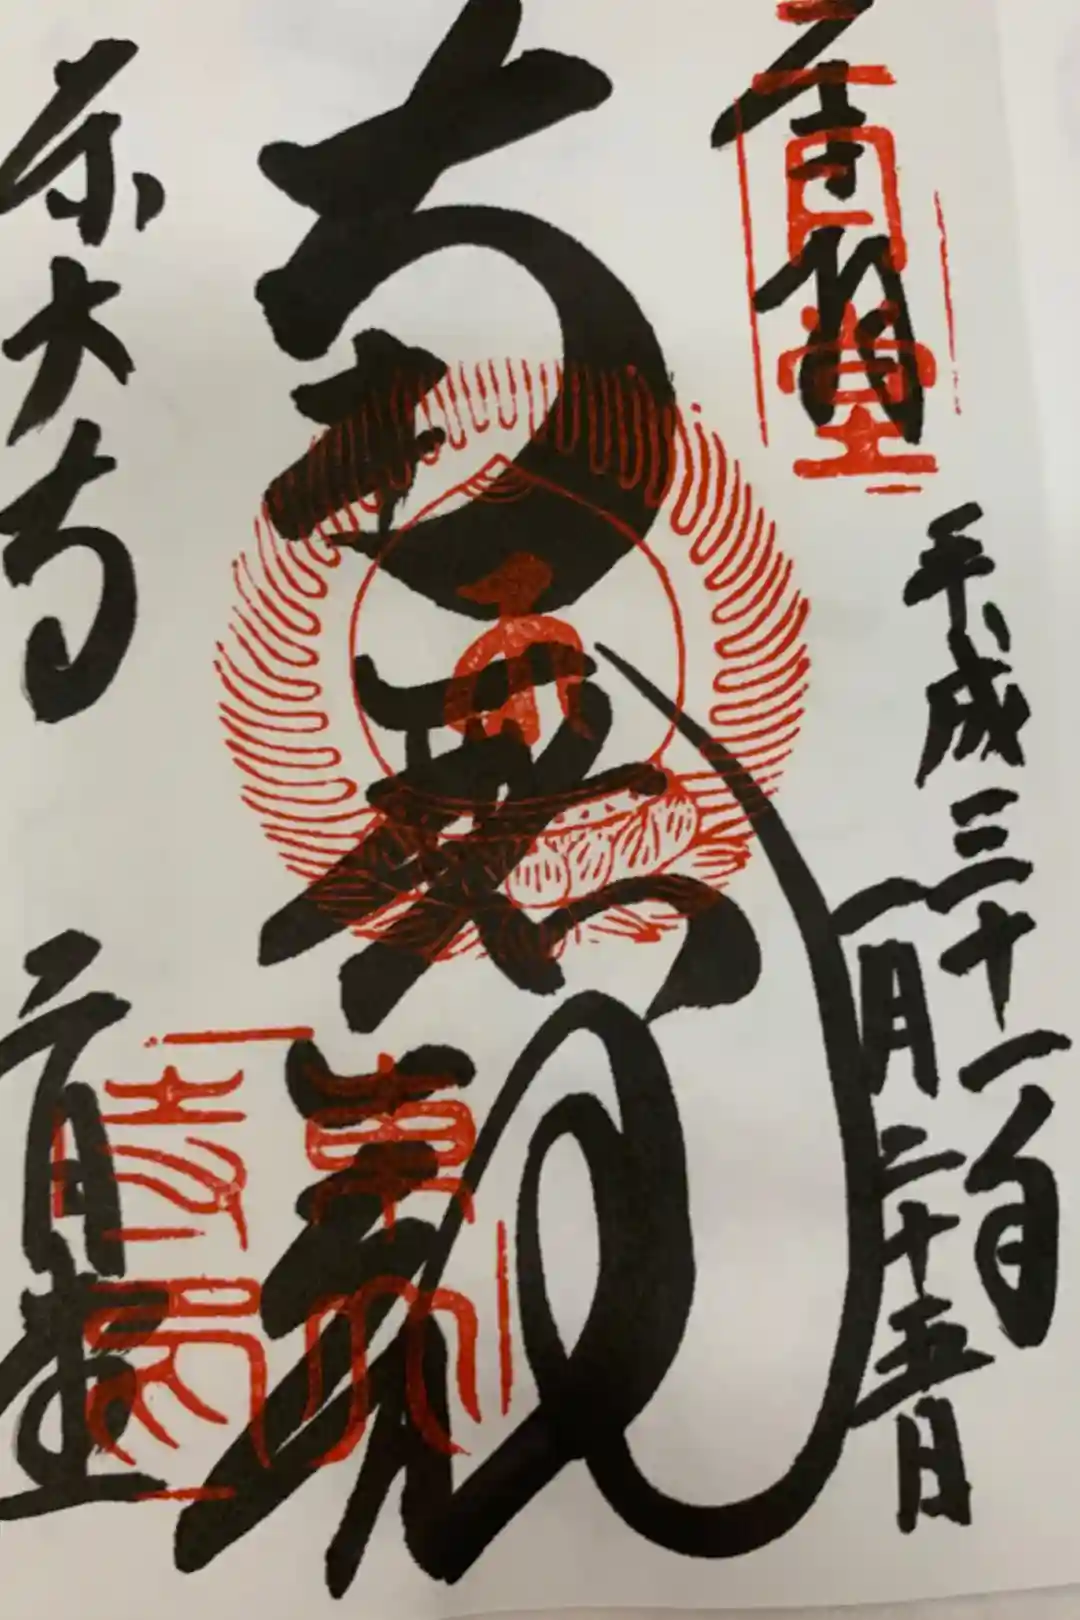 二月堂
平成三十一年
一月二十五日
南無観
東大寺 二月堂